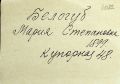 Белогуб
Мария Степановна
1899
Купорная 48